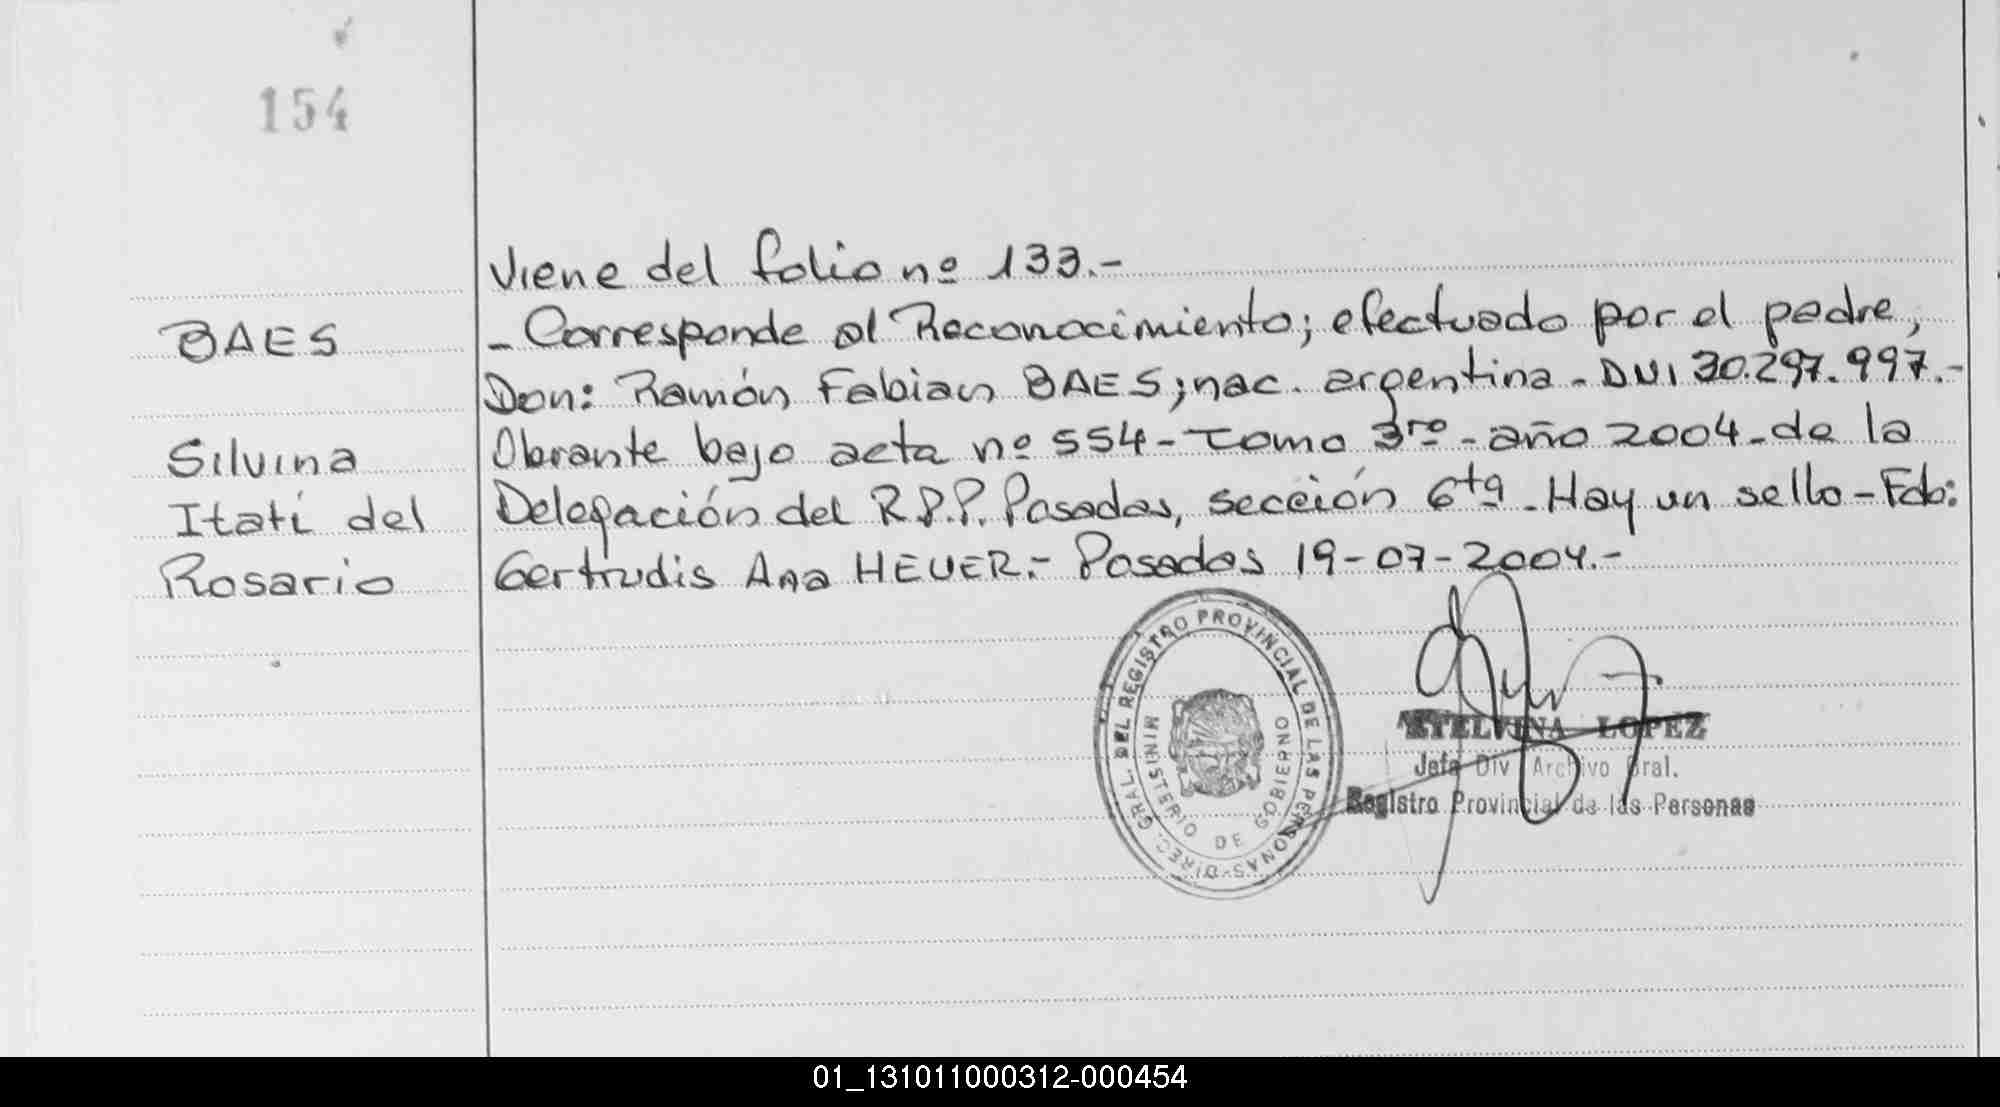 154
Viene del folio nº 133.-
BAES
- Corresponde al Reconocimiento; efectuado por el padre,
Don: Ramón Fabian BAES; nac. argentina - DNI 30.297.997.-
Silvina
Obrante bajo acta nº 554 - Tomo 3ro - año 2004 - de la
Itatí del
Delegación del R.P.P. Posadas, sección 6ta - Hay un sello - Fdo:
Rosario
Gertrudis Ana HEUER.- Posadas 19-07-2004.-
DIREC. GRAL. DEL REGISTRO PROVINCIAL DE LAS PERSONAS -
MINISTERIO DE GOBIERNO
ETELVINA LOPEZ
Jefa Div Archivo Gral.
Registro Provincial de las Personas
01_131011000312-000454